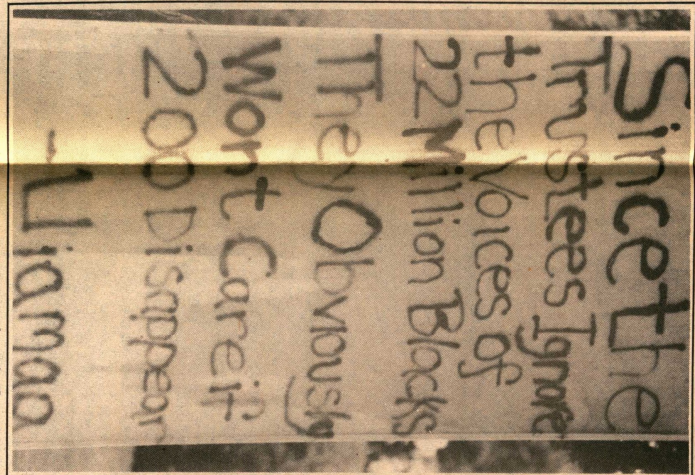 Since the
Trustees Ignore
the Voices of
22 Million Blacks
They Obviously
Wont Care if
200 Disappear
- Ujamaa